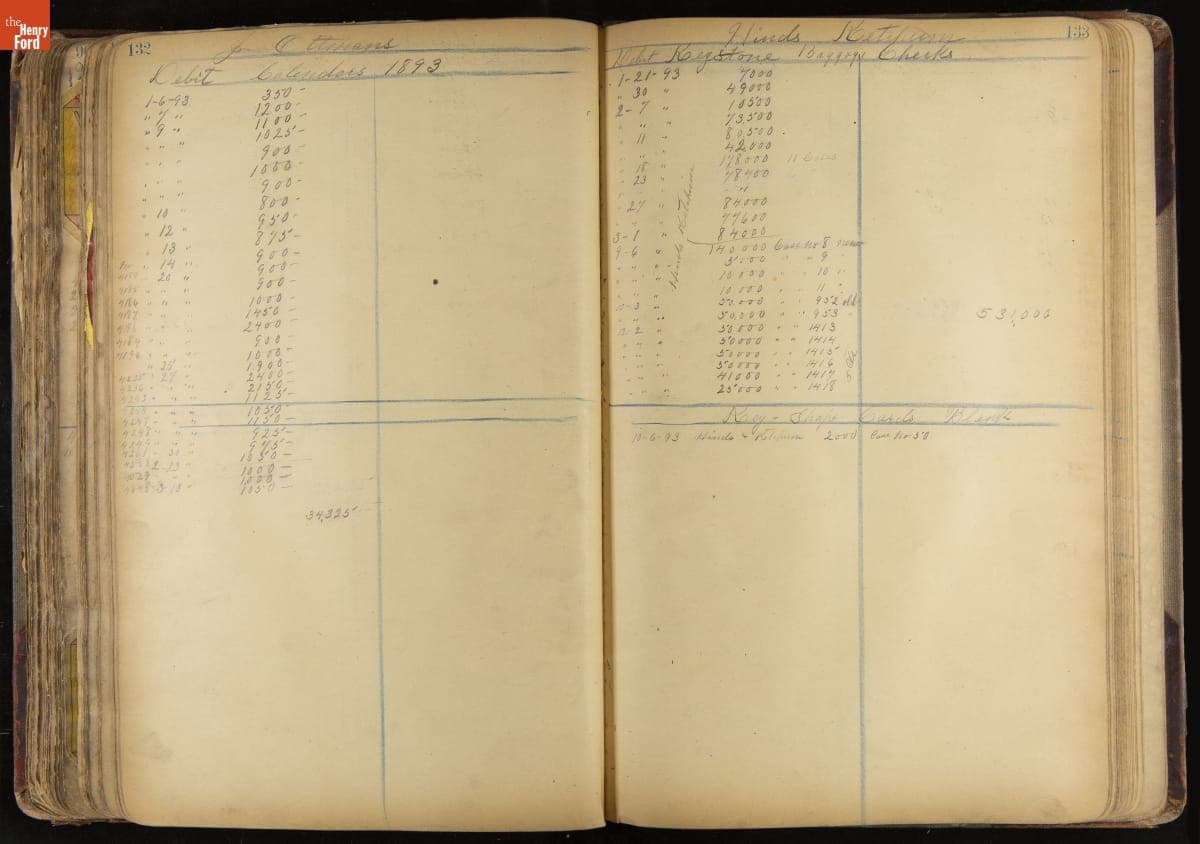 the
Henry
Ford
132
J Ottmans
Debit Calenders 1893
1-6-93 350-
" 7 " 1200-
" 9 " 1100-
" " " 1025-
" " " 900-
" " " 1050-
" " " 900-
" " " 800-
" 10 " 950-
" 12 " 875-
" 13 " 900-
" 14 " 900-
" 20 " 900-
" " " 1000-
" " " 1450-
" " " 2400-
" " " 900-
" " " 1000-
" 25 " 1900-
" 27 " 2400-
" " " 2150-
" " " 1125-
" " " 1050-
" " " 1150-
" " " 925-
" " " 975-
" 30 " 1050-
1000-
1000-
1050-
34,325
Hinds Ketchum 133
Debit Keystone Baggage Checks
1-21-93 7000
" 30 " 49000
2-7 " 10500
" " " 73,500
" 11 " 80500
" " " 42,000
" 18 " 178000
" 23 " 78400
" 27 " 84000
77600
3-1 " 84000
9-6 " 140000 Case No 8 new
" " " 5000 " " 9 "
" " " 10000 " " 10 "
" " " 10000 " " 11 "
10-3 " 50.000 " " 952 old
" " " 50,000 " " 953 "
12-2 " 50000 " " 1413
" " " 50000 " " 1414
" " " 50000 " " 1415
" " " 50000 " " 1416
" " " 41000 " " 1417
" " " 25000 " " 1418
Hinds Ketchum
531,000
Key-Shape Cards Blank
10-6-93 Hinds & Ketchum 2000 Case No 50